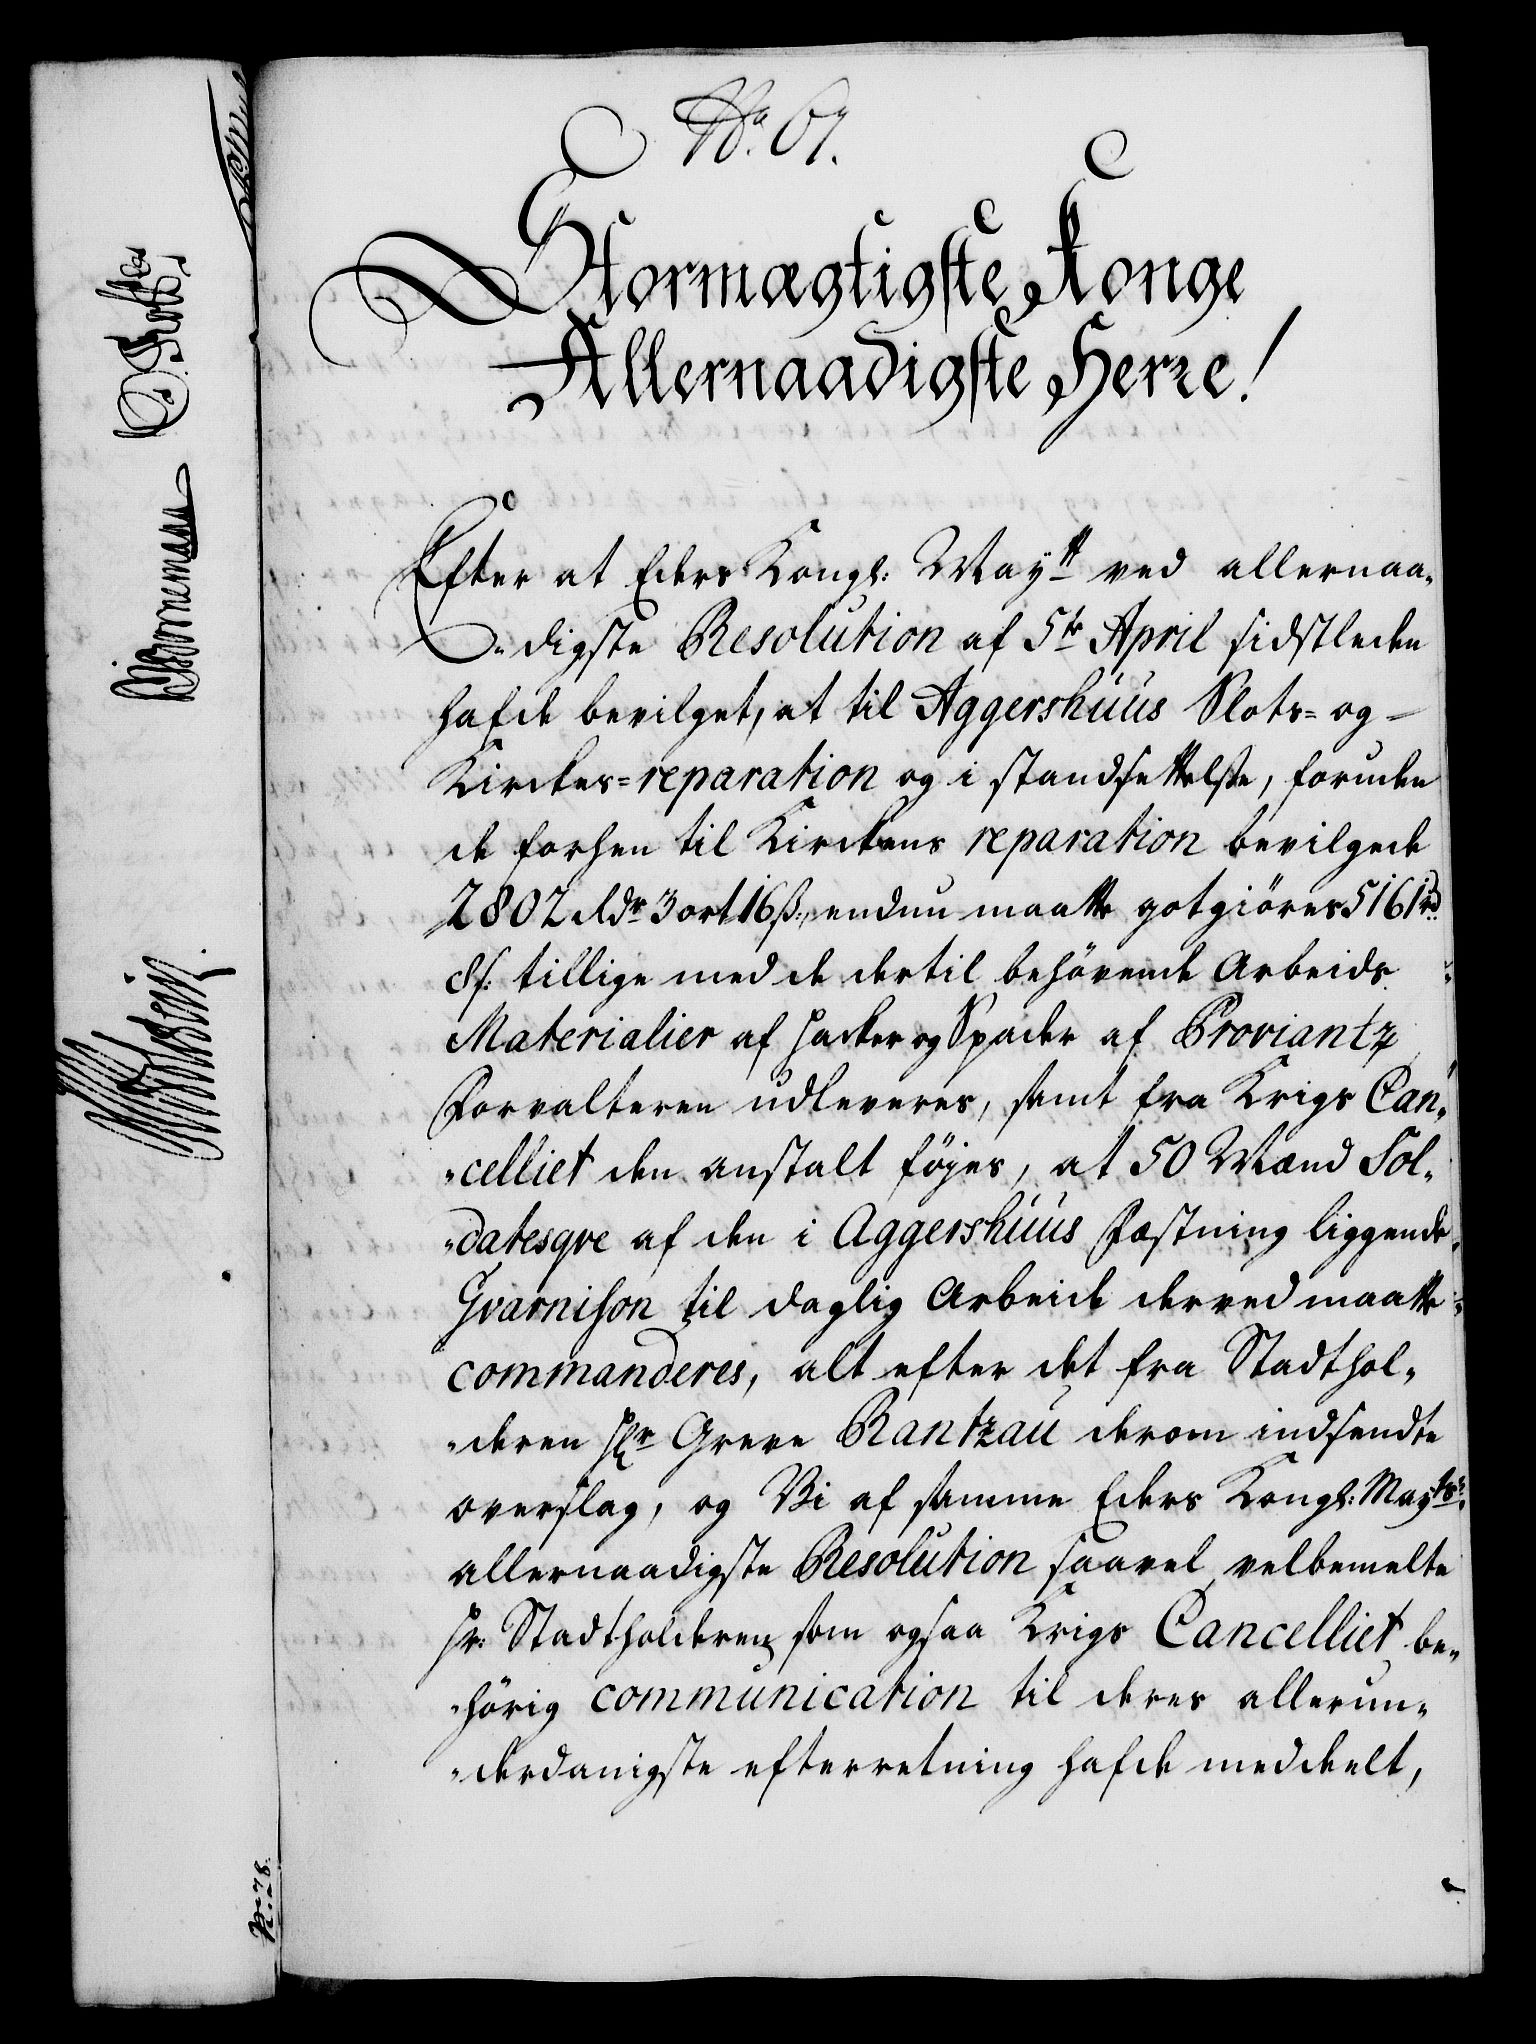 No. 67.
Stormægtigste Konge
Allernaadigste Herre!
Efter at Eders Kongl: Maytt ved allernaa-
-digste Resolution af 5te April sidstleden
hafde bevilget, at til Aggershuus Slots- og
Kirckes-reparation og i standsettelse, foruden
de forhen til Kirckens reparation bevilgede
2802 Rdr 3 ort 16 ß:, endnu maatte gotgiöres 5161 rd
8 ß: tillige med de dertil behövende Arbeids
Materialier af Hacker og Spader af Proviantz
Forvalteren udleveres, samt fra Krigs Can-
-celliet den anstalt föjes, at 50 Mand Sol-
-datesqve af den i Aggershuus Fæstning liggende
Gvarnison til daglig Arbeide derved maatte
commanderes, alt efter det fra Stadthol-
-deren Hr Greve Rantzau derom indsendte
overslag, og Vi af samme Eders Kongl: Mayts:
allernaadigste Resolution saavel velbemelte
Hr: Stadtholderen som ogsaa Krigs Cancelliet be-
-hörig communication til deres allerun-
-derdanigste efterretning hafde meddeelt,
Bornemann